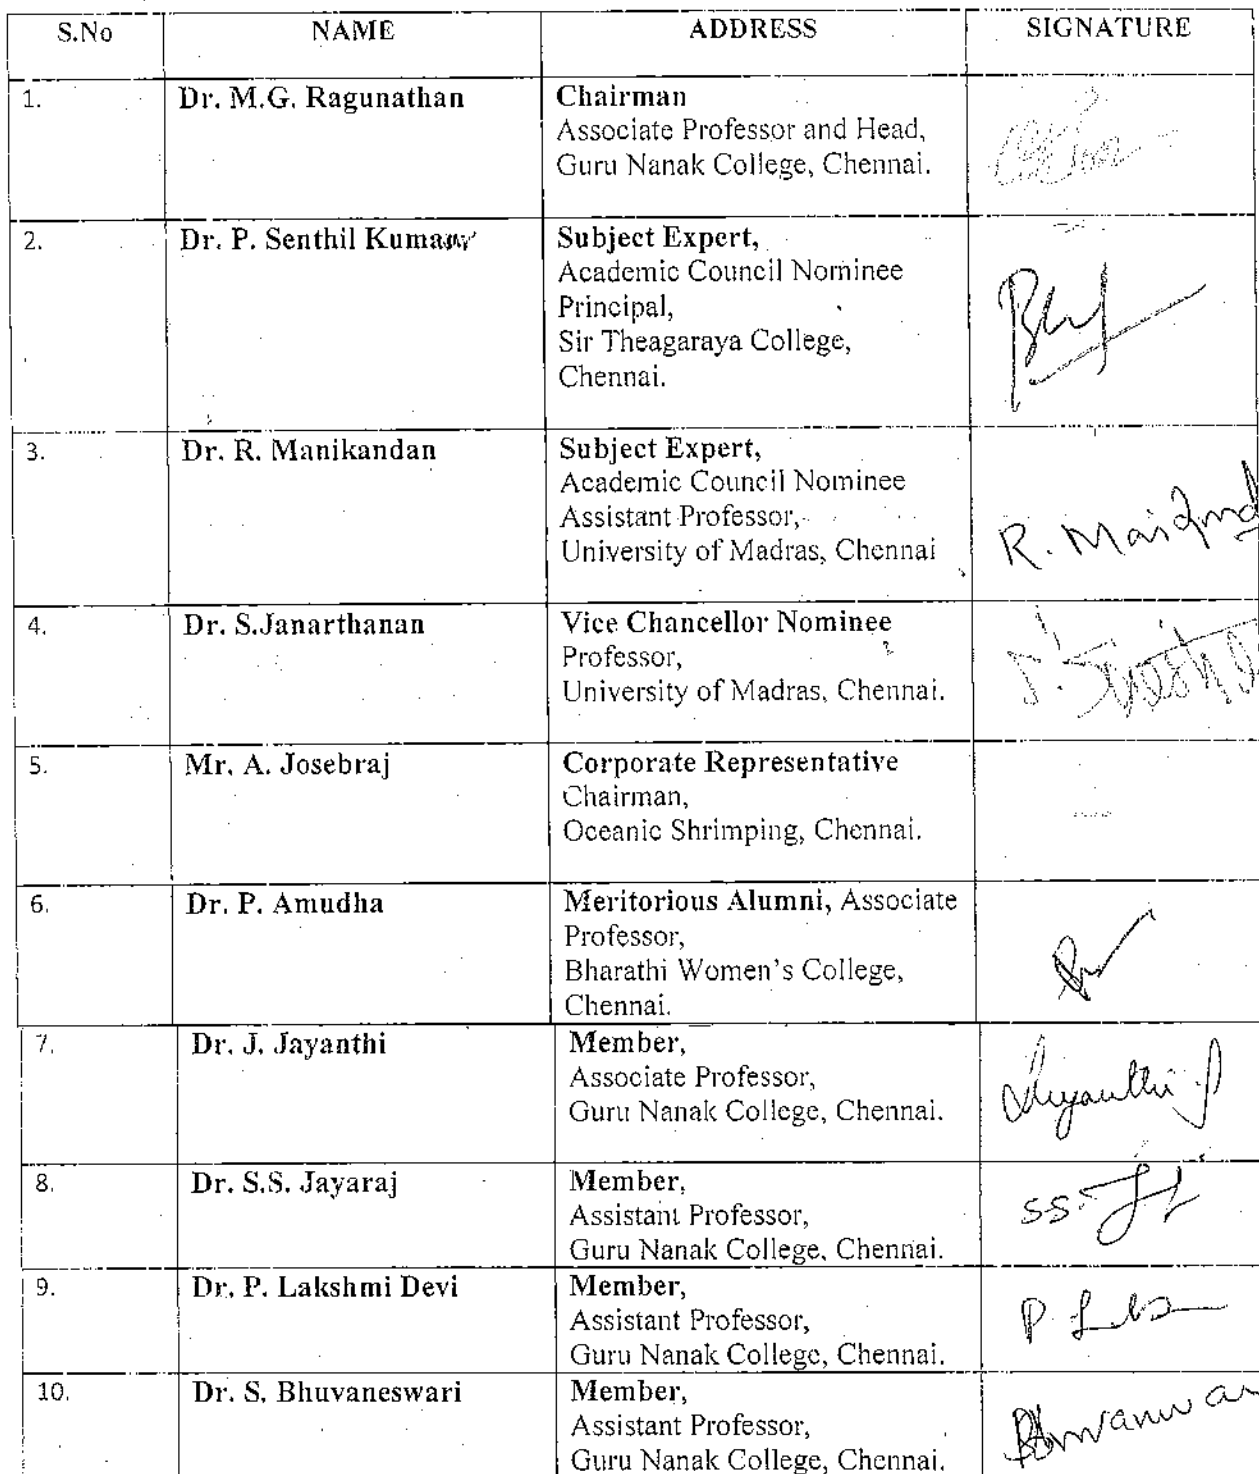 S.No NAME ADDRESS SIGNATURE
1. Dr. M.G. Ragunathan Chairman
Associate Professor and Head,
Guru Nanak College, Chennai.
2. Dr. P. Senthil Kumar Subject Expert,
Academic Council Nominee
Principal,
Sir Theagaraya College,
Chennai.
3. Dr. R. Manikandan Subject Expert,
Academic Council Nominee
Assistant Professor,
University of Madras, Chennai
R.
4. Dr. S.Janarthanan Vice Chancellor Nominee
Professor,
University of Madras, Chennai.
5. Mr. A. Josebraj Corporate Representative
Chairman,
Oceanic Shrimping, Chennai.
6. Dr. P. Amudha Meritorious Alumni, Associate
Professor,
Bharathi Women's College,
Chennai.
7. Dr. J. Jayanthi Member,
Associate Professor,
Guru Nanak College, Chennai.
8. Dr. S.S. Jayaraj Member,
Assistant Professor,
Guru Nanak College, Chennai.
SS
9. Dr. P. Lakshmi Devi Member,
Assistant Professor,
Guru Nanak College, Chennai.
P.
10. Dr. S. Bhuvaneswari Member,
Assistant Professor,
Guru Nanak College, Chennai.